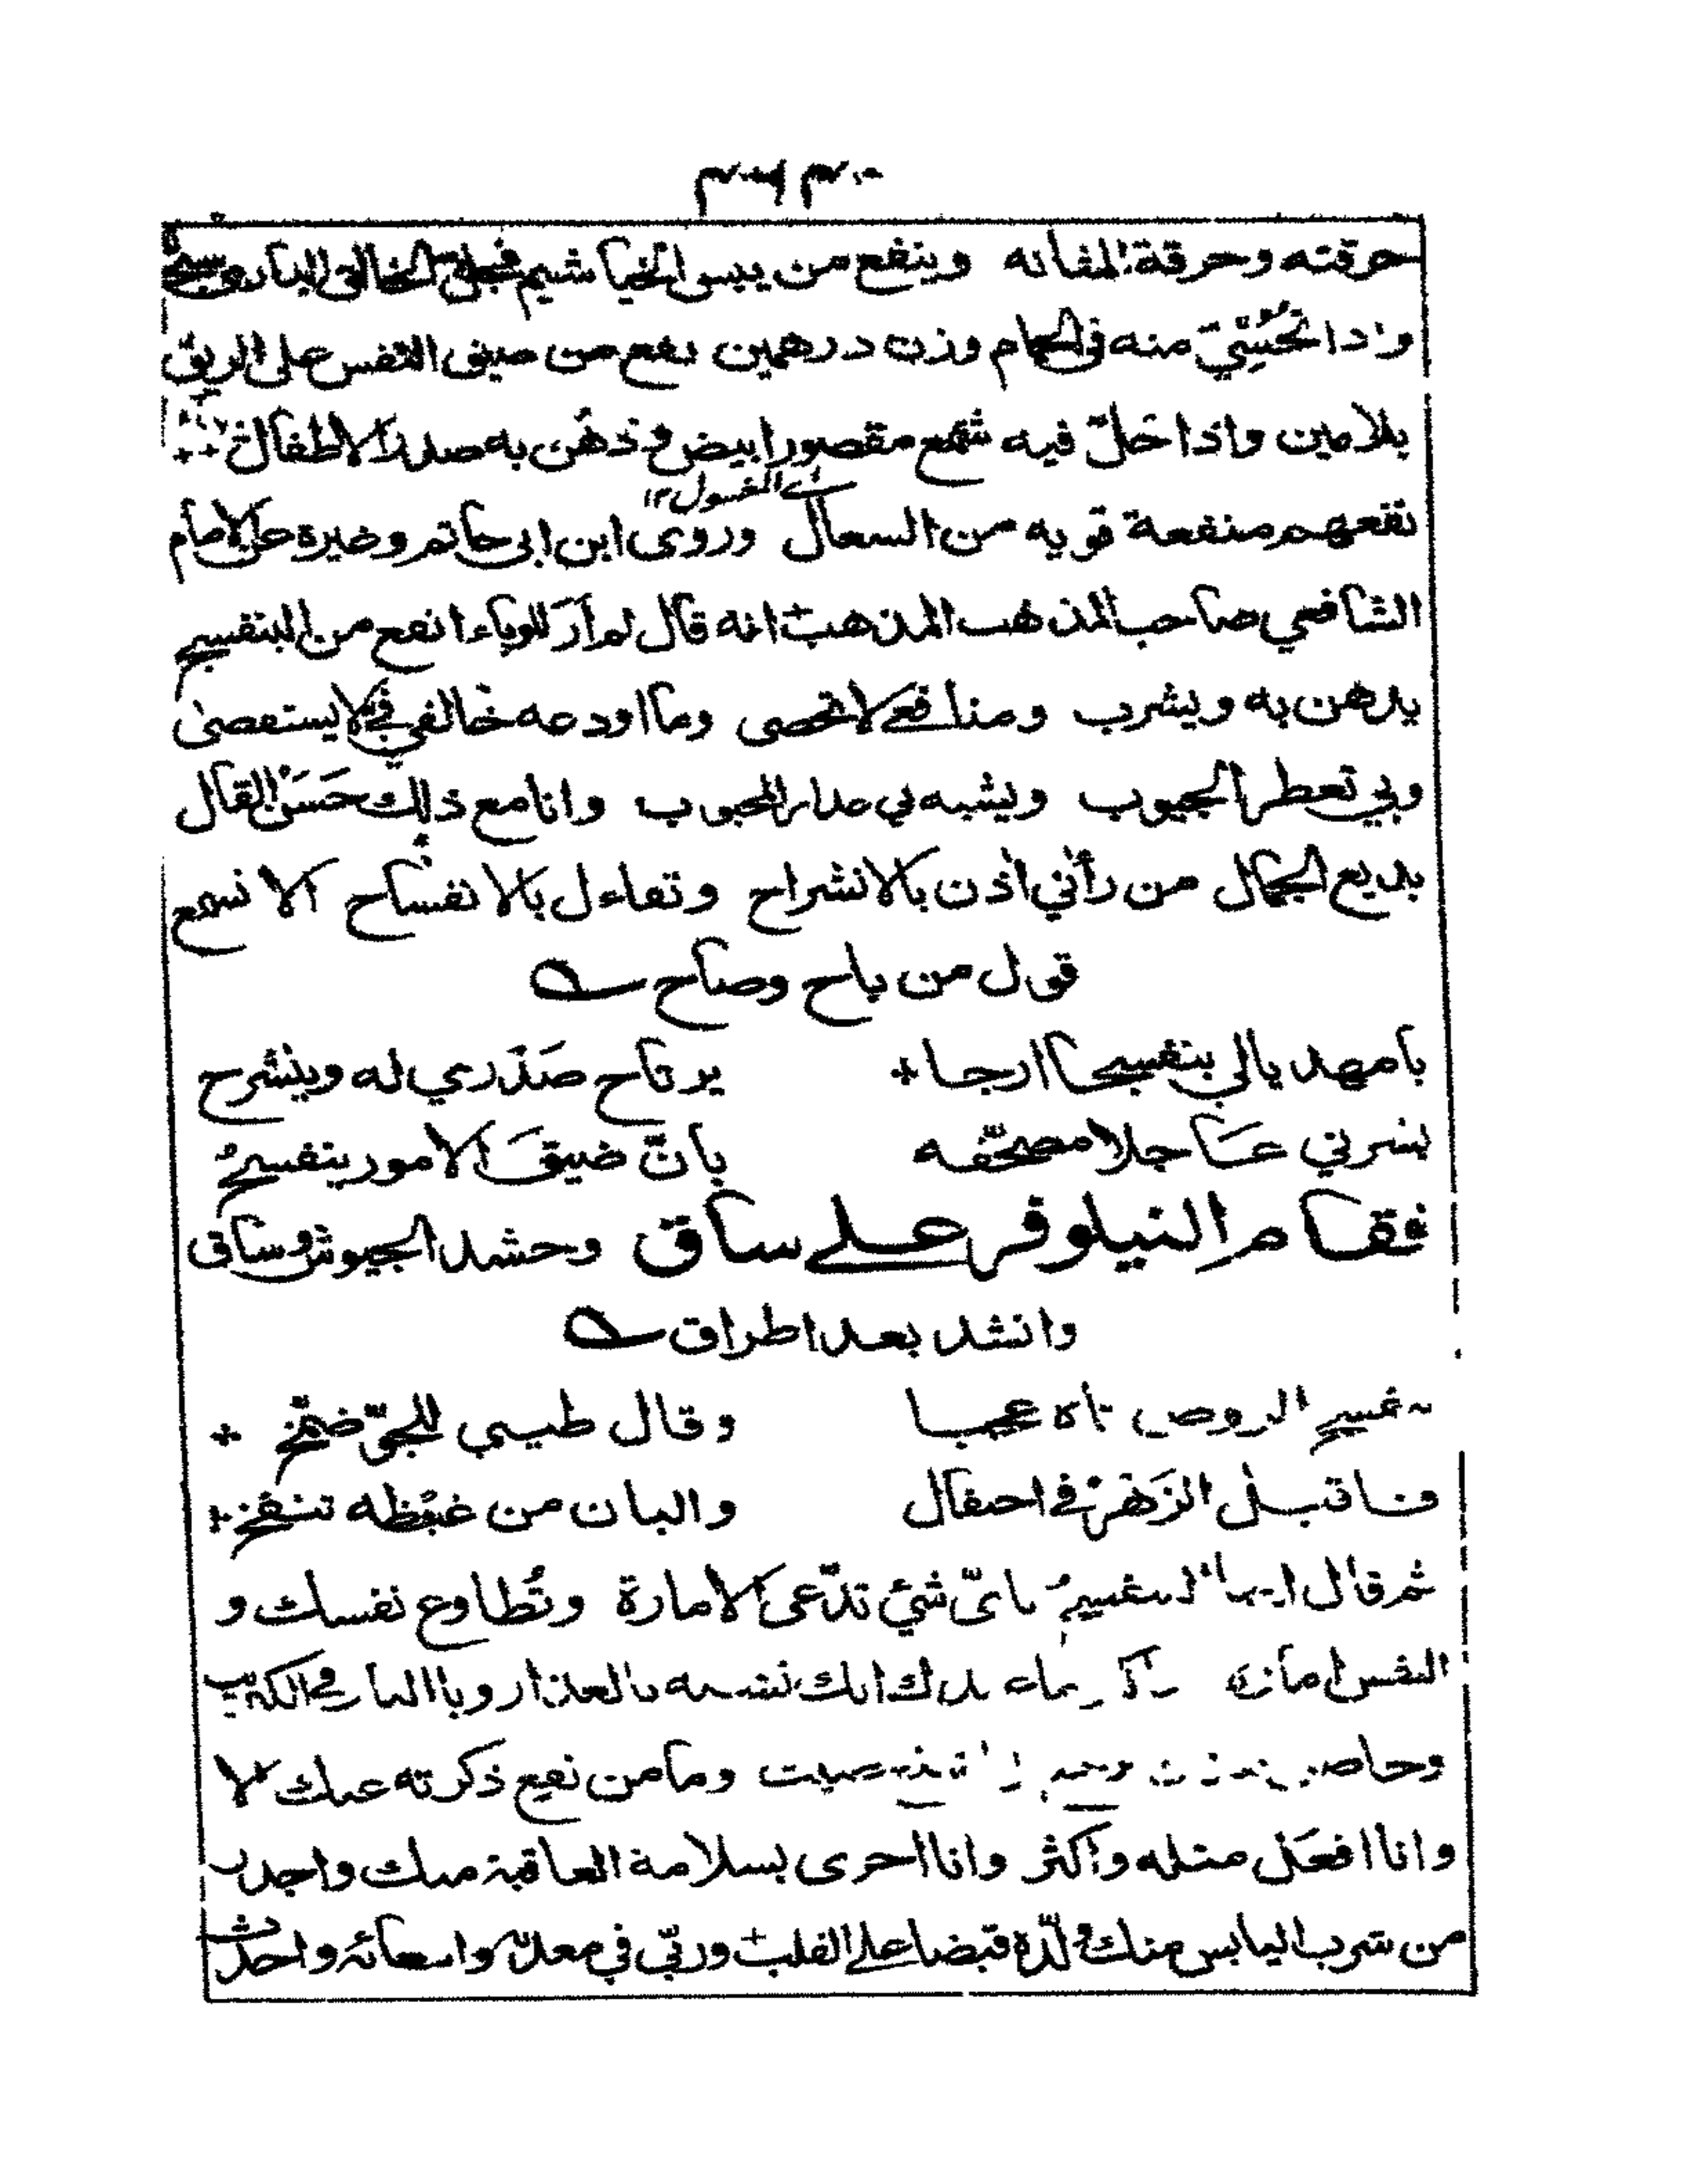 حرقته وحرقة المثانه وينفع من يبس الخياشيم فجل الخالق البارى
واذا تُحُسِّيَ منه فى الحمام وزن درهمين نفع من ضيق النفس على الريق
بلامين واذا حُلّ فيه شمع مقصور ابيض ودُهن به صدر الاطفال
اے المغسول ١٢
نفعهم منفعة قويه من السعال وروى ابن ابى حاتم وغيره عن الامام
الشافعي صاحب المذهب المذهب انه قال لم أرَ للوباء انفع من البنفسج
يدهن به ويشرب ومنافعى لا تحصى وما اودعه خالقي فيّ لا يستقصى
وبي تعطر الجيوب ويشبه بي عذار المحبوب وانا مع ذلك حَسَنُ الفال
بديع الجمال من رأني أذن بالانشراح وتفاءل بالانفساح الا تسمع
قول من باح وصاح
يا مهديا لي بنفسجا ارجا
يرتاح صَدْري له وينشرح
بشرني عاجلا مصحّفه
بانّ ضيقَ الامور ينفسحُ
فقام النيلوفر على ساق وحشد الجيوش وساق
وانشد بعد اطراق
بنفسج الروض تاه عجبا
وقال طيبي للجوّ ضمّخ
فاقبل الزَهْرُ في احتفال
والبان من غيْظه تنفخ
ثم قال ايها البنفسجُ باىّ شئ تدّعى الامارة وتُطاوع نفسك و
النفس امارة بدك انك تشبه بالعذار وبالنار في الكبريت
وما من نفع ذكرته عنك الا
وانا افعَل مثله واكثر وانا احرى بسلامة العاقبة منك واجدر
من شرب اليابس منك ولّد قبضا على القلب وربّي في معدته وامعائه واحدث